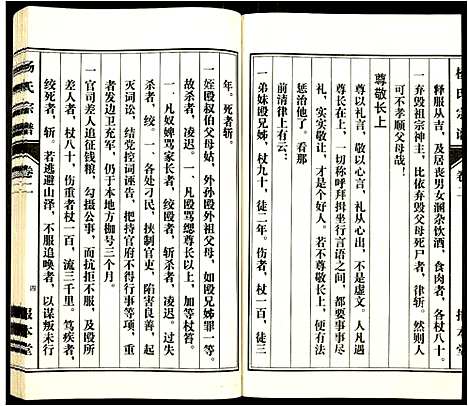 释服从吉，及居丧男女溷杂饮酒，食肉者，各杖八十。
一弃毁祖宗神主，比依弃毁父母死尸者，律斩。然则人
可不孝顺父母哉！
尊敬长上
尊以礼言，敬以心言，礼从心出，不是虚文。人人有个
尊长在上，一切称呼拜揖坐行言语之间，都要事事尽
礼，实实敬让，才是个好人。若不尊敬长上，便有法
惩治他了。看那
前清律上有云：
一弟妹殴兄姊，杖九十，徒二年。伤者，杖一百，徒三
年。死者斩。
一姪殴叔伯父母姑，外孙殴外祖父母，如殴兄姊罪一等。
者，凌迟。
一、凡奴婢骂家长者，绞殴者，斩杀者，凌迟。过失
杀者，绞。一、凡骂缌尊长以上，加等杖笞。
一、各处刁民，挟制官吏，陷害良善，起
灭词讼，结党控词诬告，把持官府不得行事等项，重
者发边卫充军，仍于本地方枷号三个月。
一官司差人追征钱粮，勾摄公事，而抗拒不服，及殴所
差人者，杖八十，伤重者杖一百，流三千里。笃疾者，
绞死者，斩，若逃避山泽，不服追唤者，以谋叛未行
杨氏宗谱
卷二
四
报本堂